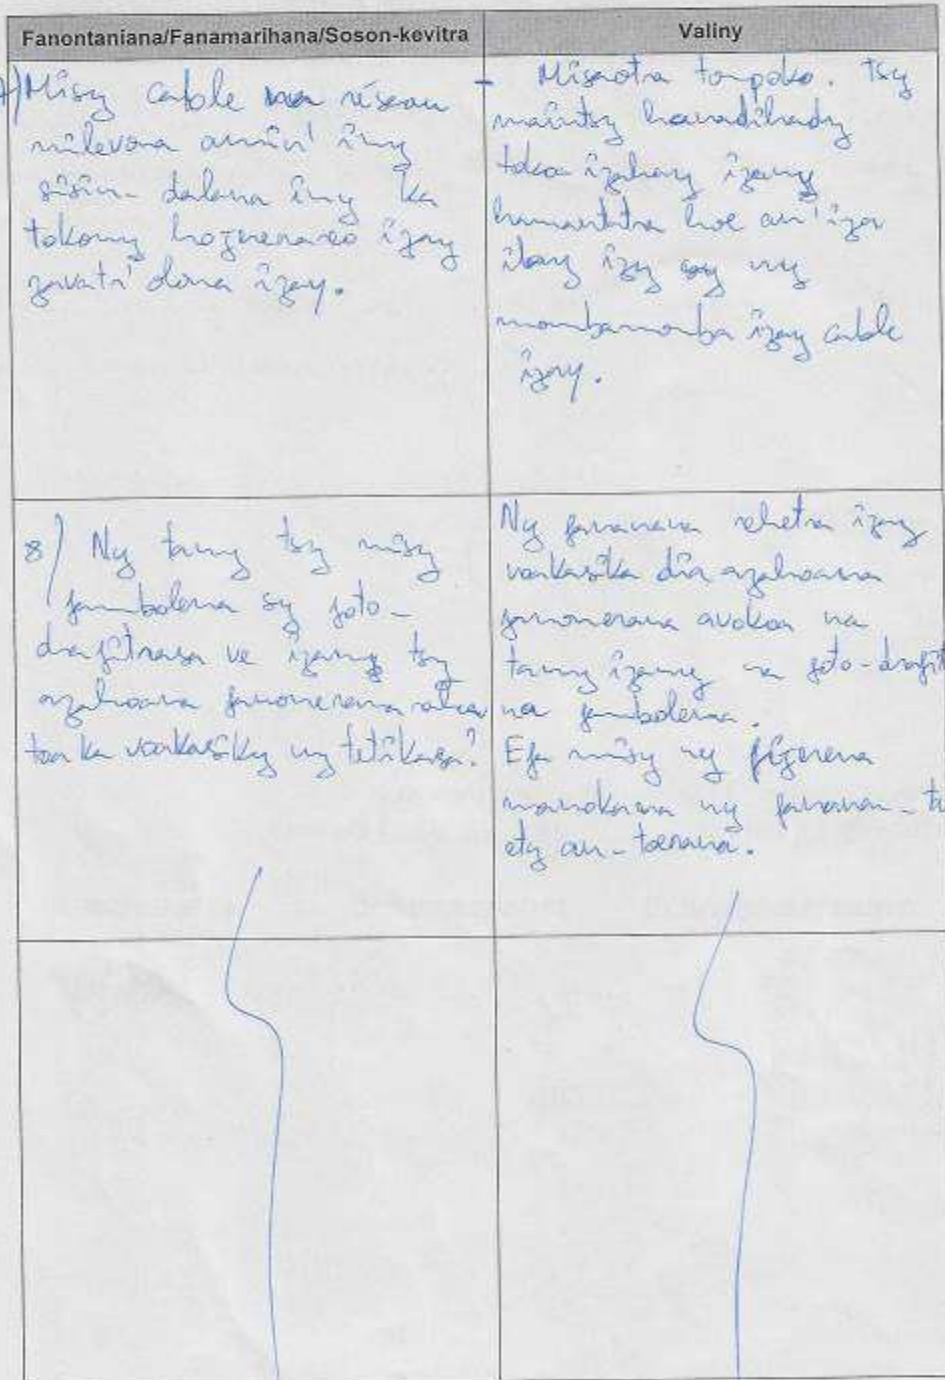 Fanontaniana/Fanamarihana/Soson-kevitra
Valiny
7) Misy cable na réseau
milevona amin' iny
sisin-dalana iny ka
tokony hojerenareo izany
zavatra izany.
- Misaotra tompoko. Tsy
maintsy hanadihady
tokoa izahay izany
hamantatra hoe an' iza
ilay izy sy ny
mombamomba izany cable
izany.
8) Ny tany tsy misy
fambolena sy foto-
drafitrasa ve izany tsy
azahoana fanonerana
ka voakasiky ny tetikasa?
Ny fananana rehetra izay
voakasika dia azahoana
fanonerana avokoa na
tany izany na foto-drafit
na fambolena.
Efa misy ny fijerena
manokana ny fananan-ta
ety an-toerana.